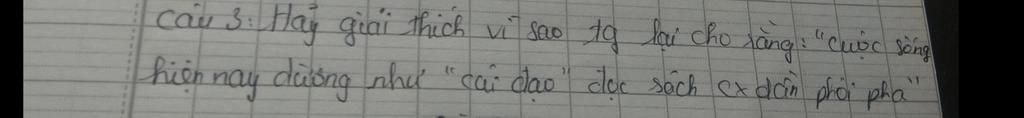 Câu 3: Hãy giải thích vì sao tg lại cho rằng: "cuộc sống
hiện nay dường như "cái đạo" đọc sách cx dần phôi pha"